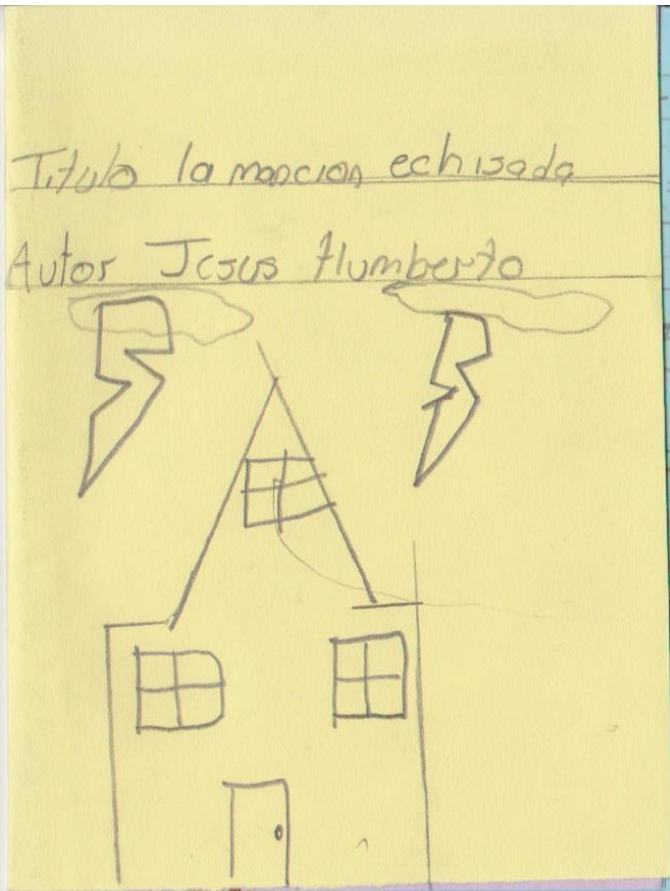 Titulo la mancion echisada
Autor Jesus Humberto